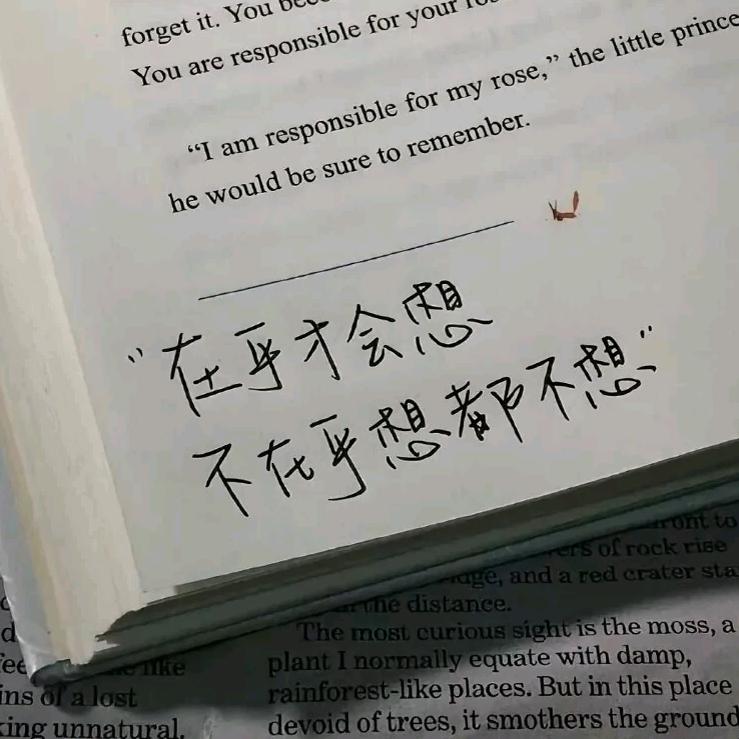 forget it. You
You are responsible for your
“I am responsible for my rose,” the little prince
he would be sure to remember.
“在乎才会想
不在乎想都不想”
to
of rock rise
and a red crater
the distance.
The most curious sight is the moss, a
plant I normally equate with damp,
rainforest-like places. But in this place
devoid of trees, it smothers the ground
like
of a lost
unnatural.